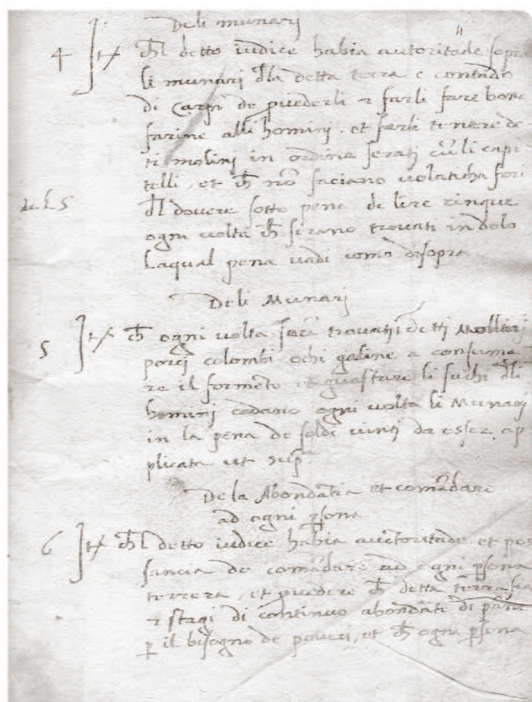 Deli munarj
4 Itẽ ch̃l detto iudice habia autoritade sopra
li munari d̃la detta terra e contado
di Carpi de puederli et farli fare bone
farine alli homini. et farli tenere de
ti molini in ordine serati cũ li capi
telli, et ch̃ nõ faciano volaticha fori
d̃l dovere sotto pena de lire zinque
ogni volta ch̃ serano trovati in dolo
Laqual pena vadi como disopra
Deli Munarj
5 Itẽ ch̃ ogni volta serã trovati i detti mollinj
porcj colombi ochi galine a consuma
re il formẽto et guastare li sachi d̃li
homini cadano ogni volta li Munarj
in la pena de soldi vintj da esser ap
plicata ut supª
De la Abondãtia et comãdare
ad ogni p̃sona
6 Itẽ ch̃l detto iudice habia auctoritade et pos
sancia de comãdare ad ogni p̃sona
terrera, et puedere ch̃ detta terra sia
et stagi di continuo abondãti di pane
p̱ il bisogno de poveri, et ch̃ ogna p̃sona